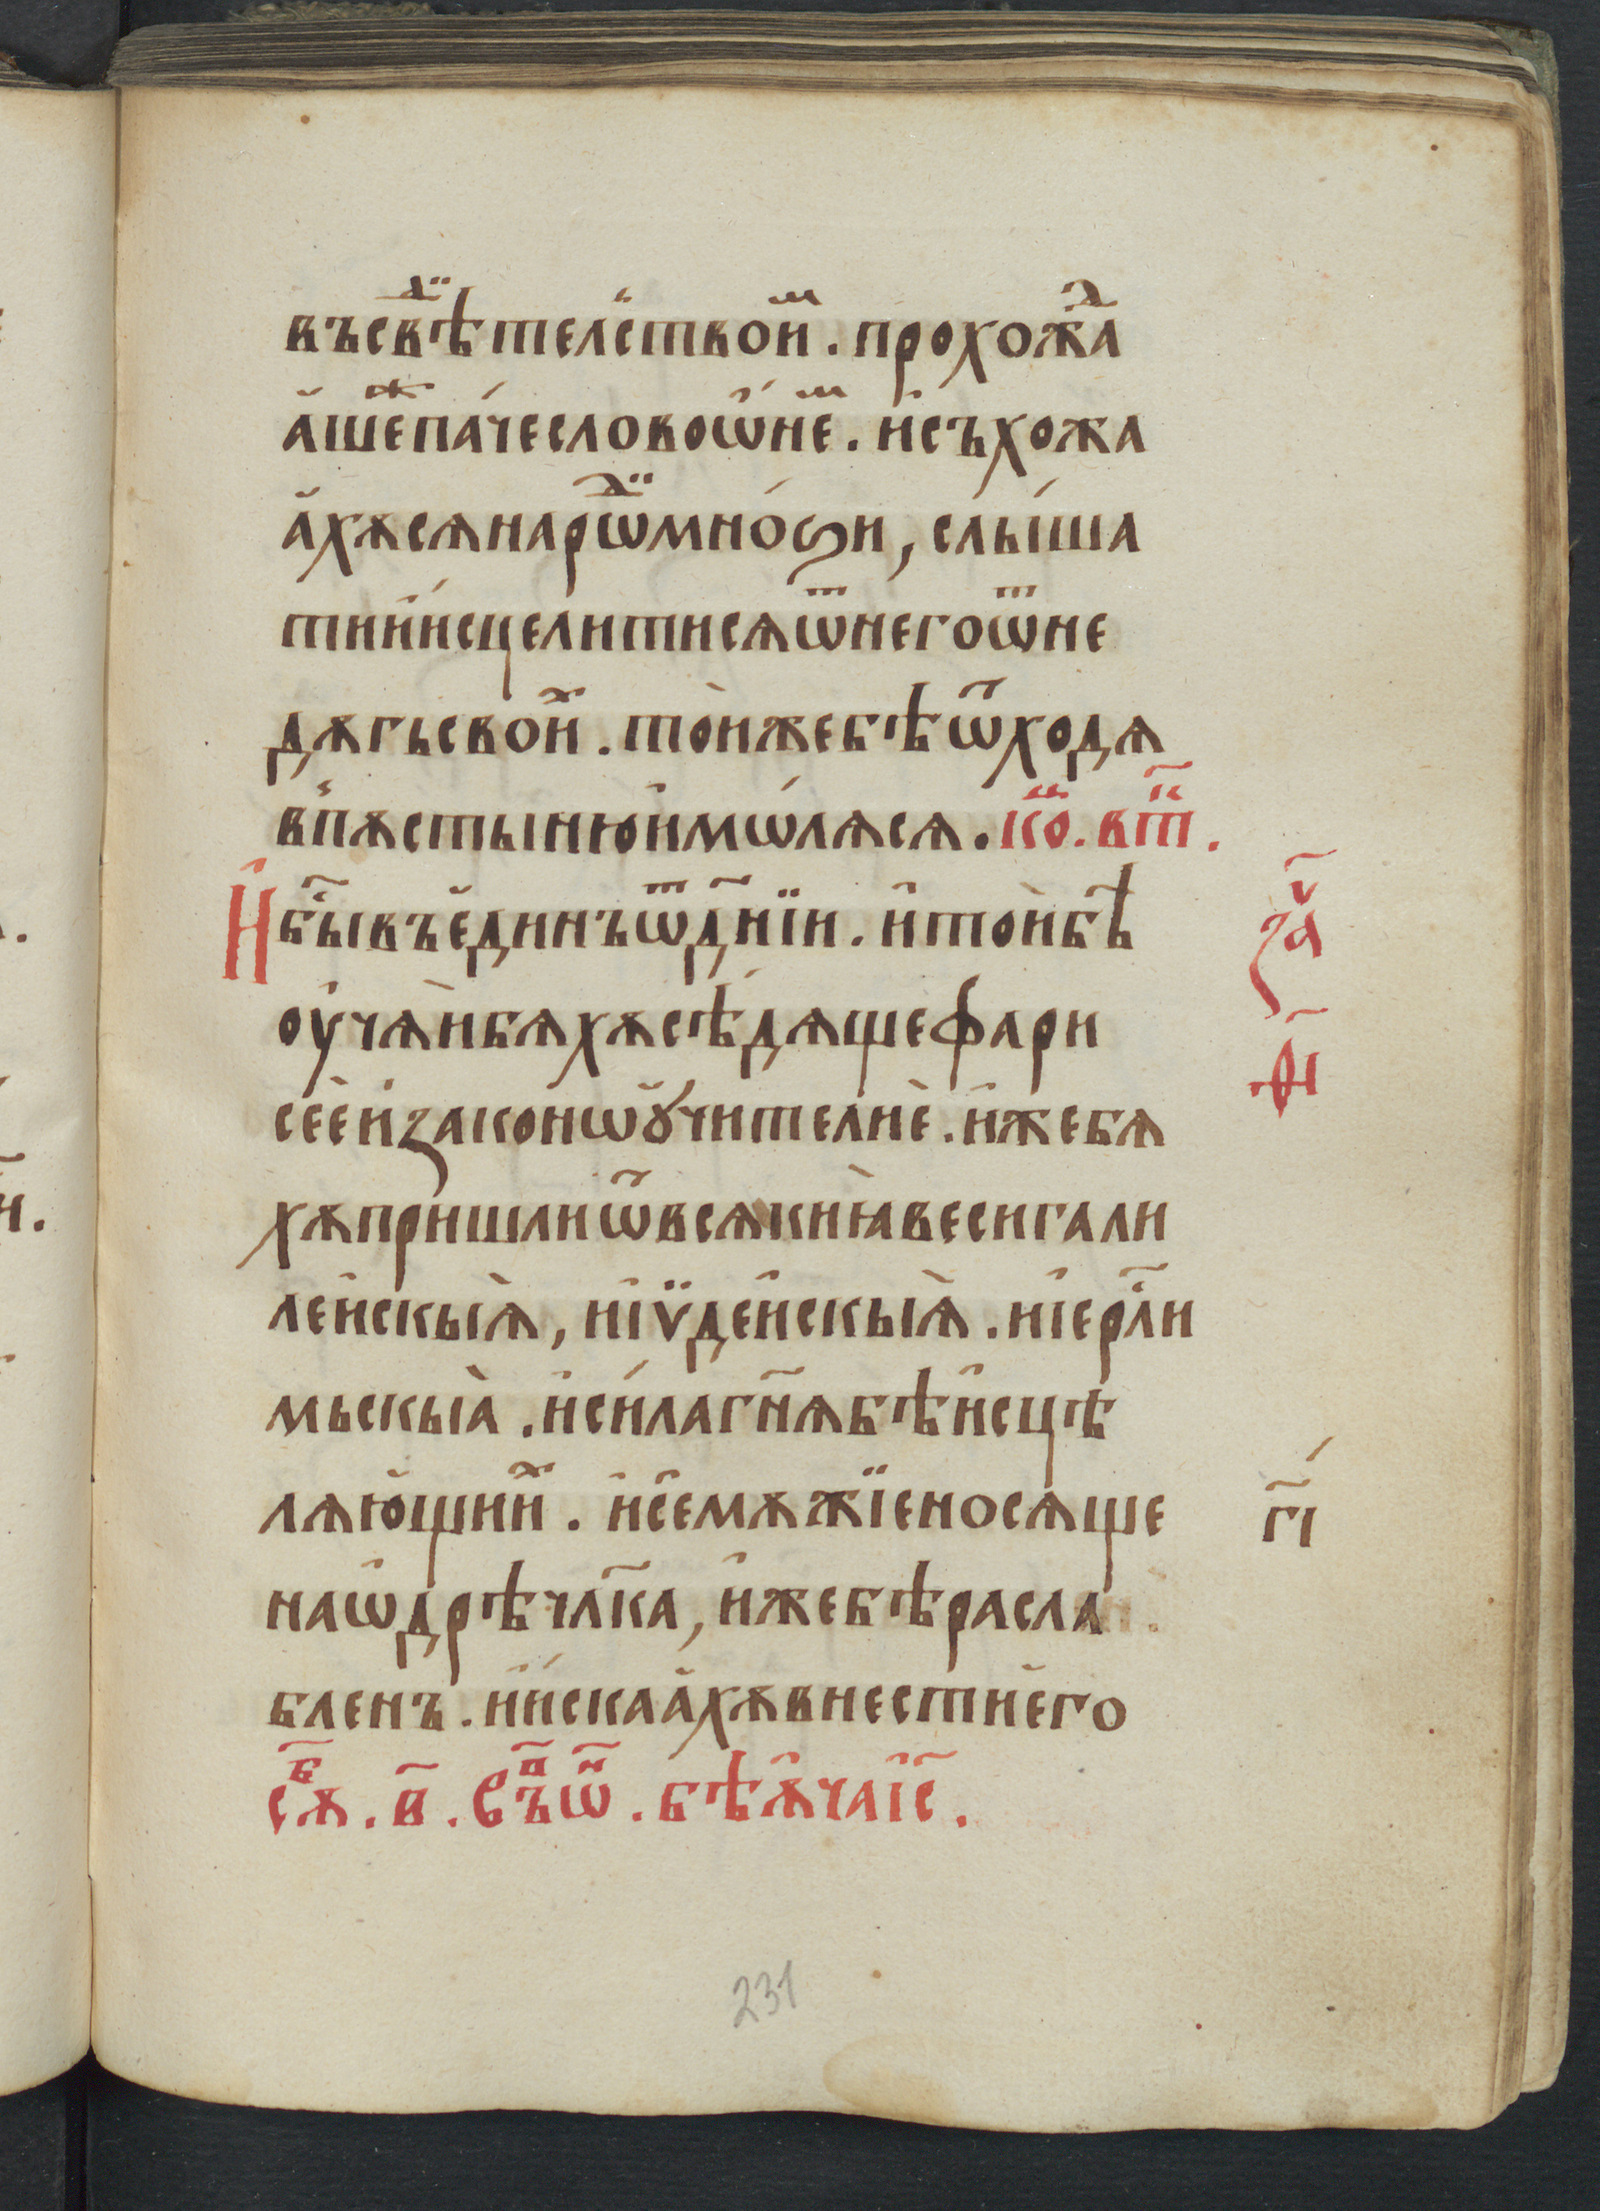 въсвⷣѣтелс҄твоиⷨ . прохожⷣа
ашеⷤпа́чесловоѡ҆неⷨ . и҆съхожа
ахѫсѧнарѡⷣмно́ѕи , слы́ша
тиии҆сцелитисѧѿнегоѿне
дѫгьсвоиⷯ . то̀ижебѣѿходѧ
вп꙼ѫстынюи҆мѡ́лѧсѧ . коⷰ . втⷦ҇ .
И҆ бы҇въе҆динъѿдн҃їи . и҆то̀ибѣ
оу҆чѧ̀ибѧхѫсѣдѧщефари
сеѐи҆законоѡꙋчителн҄ѐ . и҆жебѧ
хѫпришлиѿвсѧкиꙗ̀весигали
леи҆скыѧ̀ , и҆іѵ̈деи҆скыѧ̀ . и҆іерл҃и
мьскыа̀ . и҆си́лагн҃ѧбѣи҆сцѣ
лѧю҆щииⷯ . и҆се҆мѫжїеносѧще
наѡ҆дрѣчл҃ка , и҆жебѣрасла
бленъ . и҆и҆скаахѫвнестие҆го
сѫⷠ҇ . в҃ . съⷫ҇ѡⷩ҇ . бѣѧ҆чаі҆с҃ .
заⷱ҇
ѳ҃і
г҃і
231